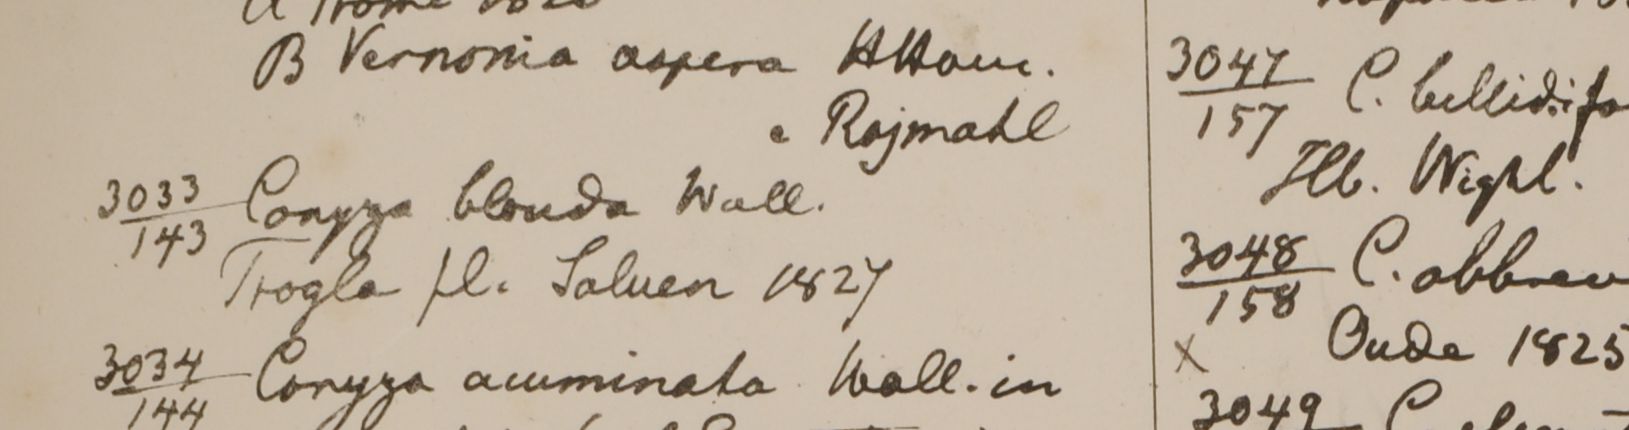 A Prome 1826
B Vernonia aspera HHam.
e Rajmahl
3033/143 Conyza blanda Wall.
Trogla fl. Saluen 1827
3034/144 Conyza acuminata Wall. in
3047/157 C. bellidifo
Hb. Wight.
3048/158 C. abbrev
x Oude 1825
3049 C.